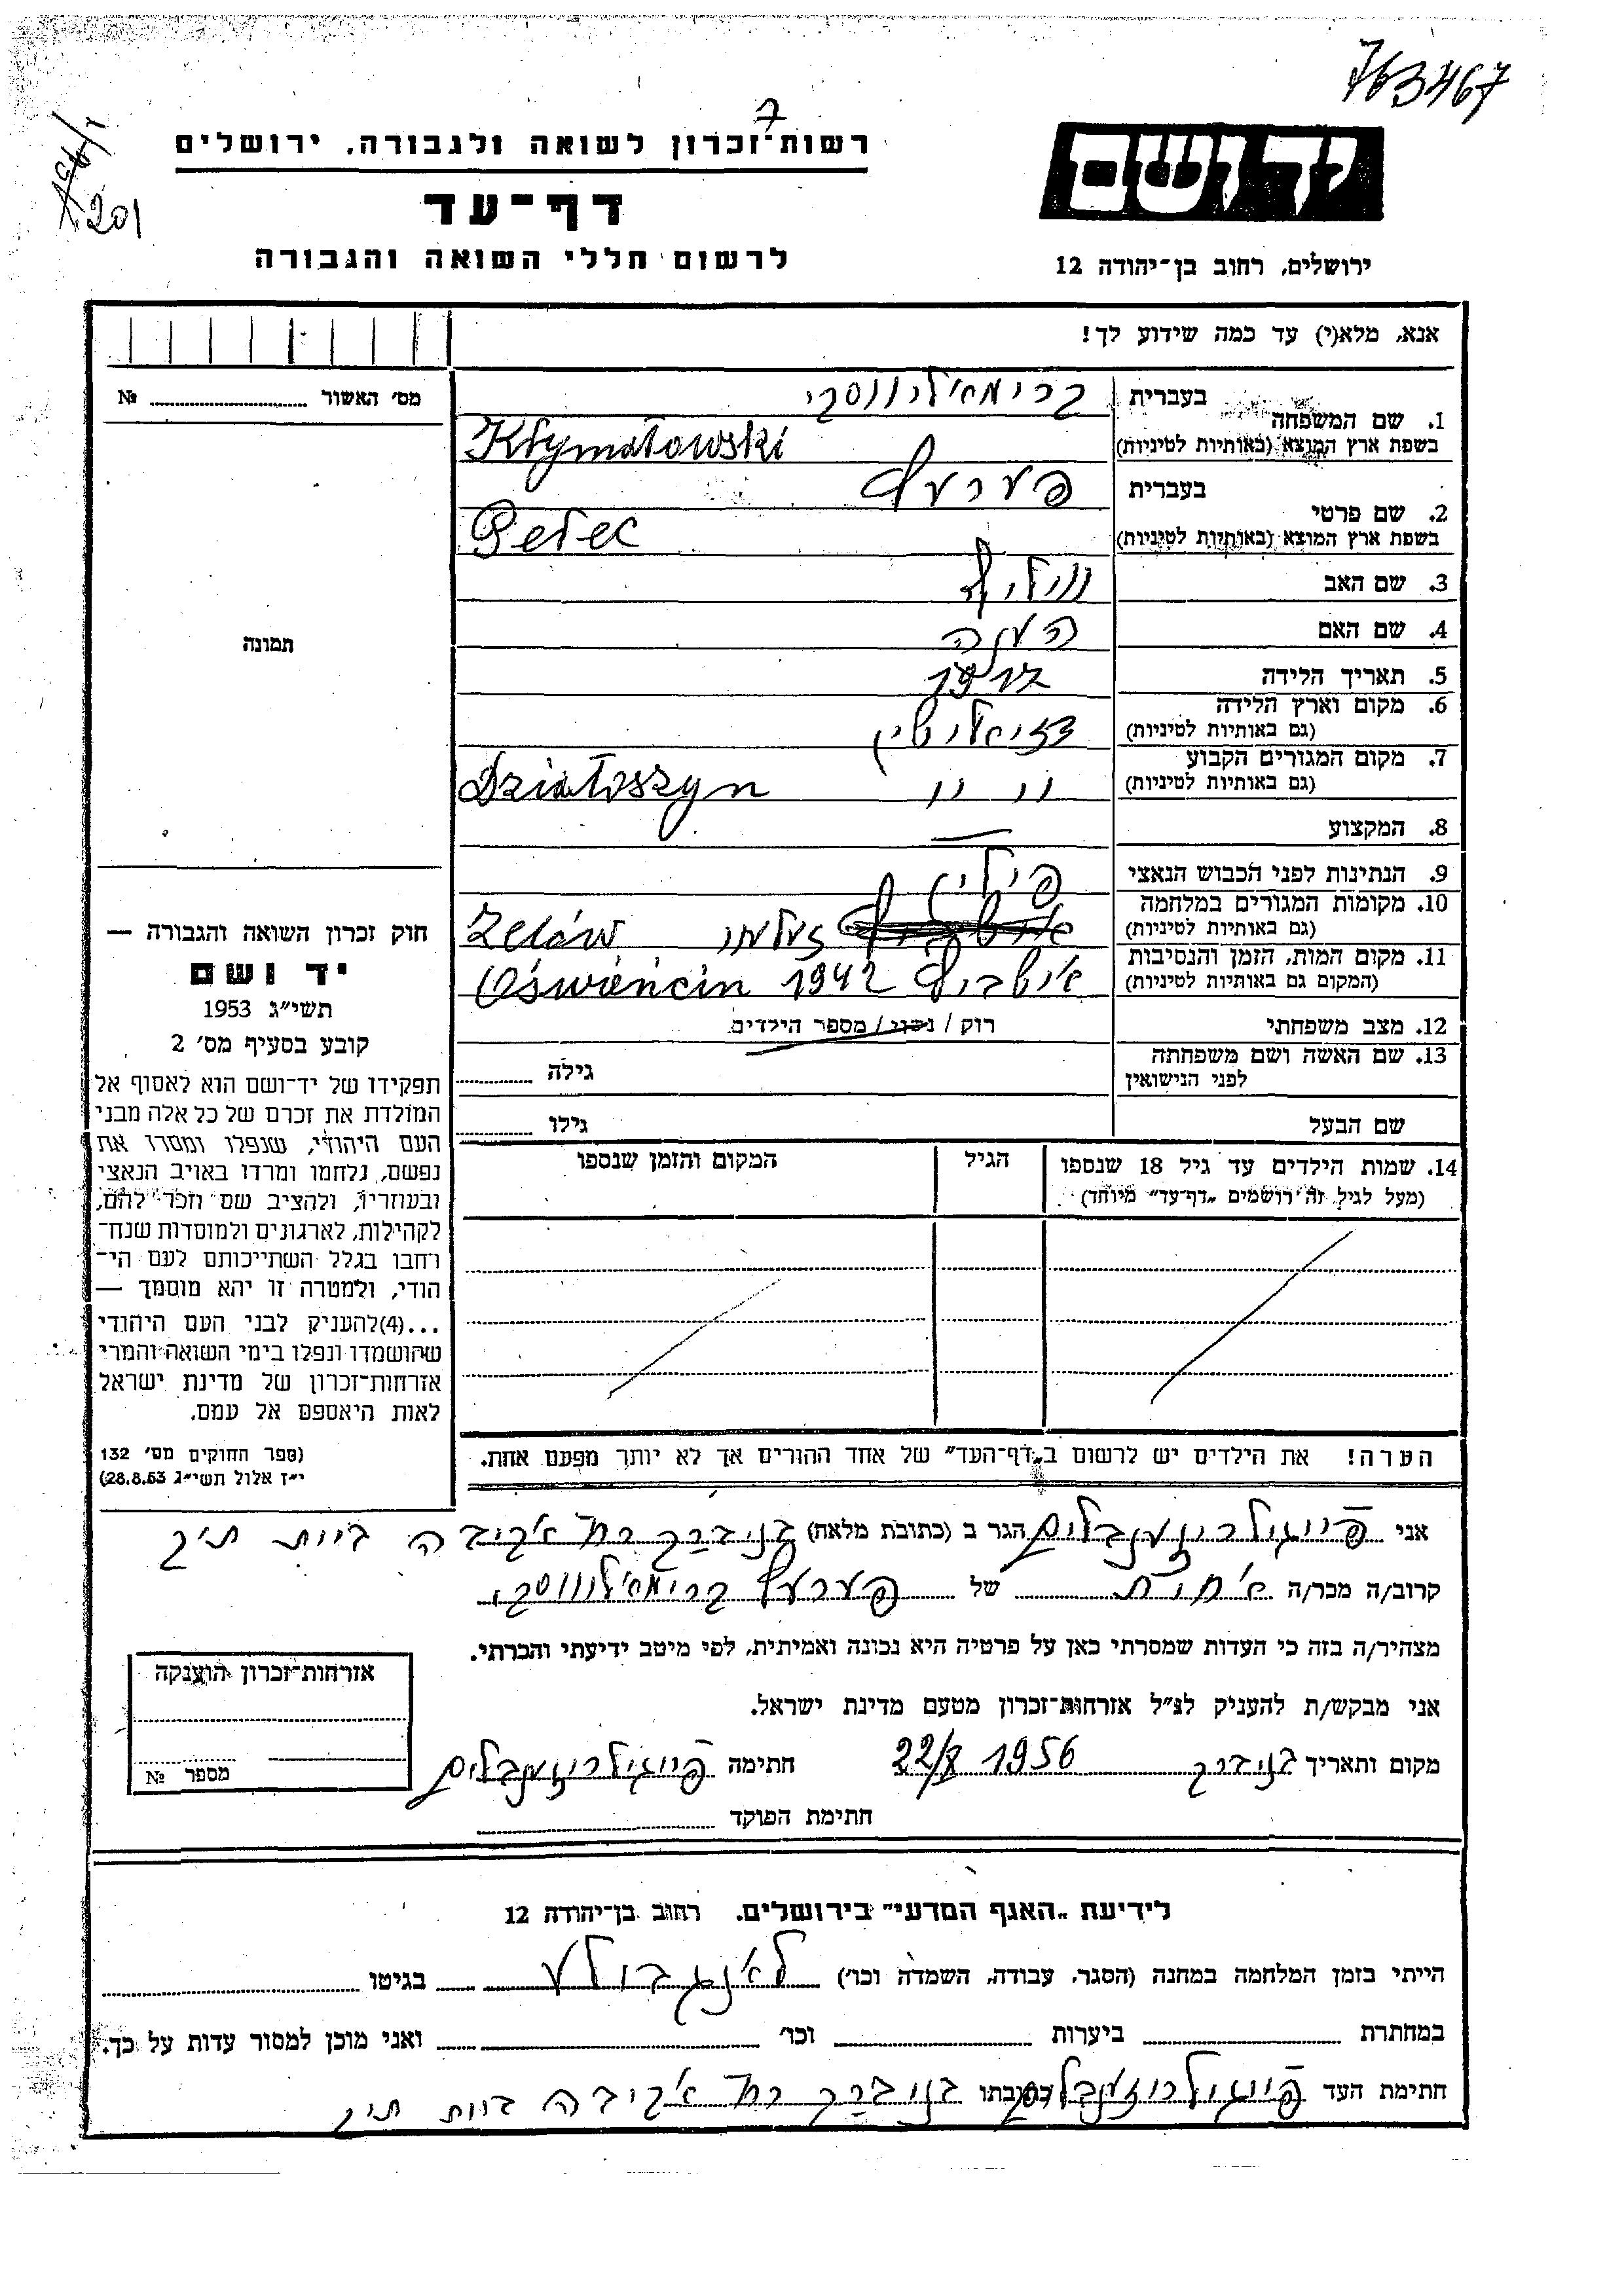 763467
201
רשות־זכרון לשואה ולגבורה, ירושלים
דף־עד
לרשום חללי השואה והגבורה
ירושלים, רחוב בן־יהודה 12
אנא, מלא(י) עד כמה שידוע לך!
מס׳ האשור № 
1. שם המשפחה
בעברית
בשפת ארץ המוצא (באותיות לטיניות)
Krymałowski
2. שם פרטי
בעברית פערעץ
בשפת ארץ המוצא (באותיות לטיניות)
Perec
3. שם האב וויליף
4. שם האם הענה
5. תאריך הלידה 1917
6. מקום וארץ הלידה
(גם באותיות לטיניות)
7. מקום המגורים הקבוע
(גם באותיות לטיניות)
" " Działoszyn
8. המקצוע —
9. הנתינות לפני הכבוש הנאצי פוילין
10. מקומות המגורים במלחמה
(גם באותיות לטיניות)
Zelów
11. מקום המות, הזמן והנסיבות
(המקום גם באותיות לטיניות)
1942 Oświencin
12. מצב משפחתי רוק / נשוי / מספר הילדים
13. שם האשה ושם משפחתה
לפני הנישואין
גילה
שם הבעל גילו
14. שמות הילדים עד גיל 18 שנספו
(מעל לגיל זה רושמים „דף־עד״ מיוחד)
הגיל
המקום והזמן שנספו
הערה! את הילדים יש לרשום ב„דף־העד״ של אחד ההורים אך לא יותר מפעם אחת.
תמונה
חוק זכרון השואה והגבורה —
יד ושם
תשי״ג 1953
קובע בסעיף מס׳ 2
תפקידו של יד־ושם הוא לאסוף אל
המולדת את זכרם של כל אלה מבני
העם היהודי, שנפלו ומסרו את
נפשם, נלחמו ומרדו באויב הנאצי
ובעוזריו, ולהציב שם וזכר להם,
לקהילות, לארגונים ולמוסדות שנח־
רבו בגלל השתייכותם לעם הי־
הודי, ולמטרה זו יהא מוסמך —
...(4) להעניק לבני העם היהודי
שהושמדו ונפלו בימי השואה והמרי
אזרחות־זכרון של מדינת ישראל
לאות היאספם אל עמם.
(ספר החוקים מס׳ 132
י״ז אלול תשי״ג 28.8.53)
אני פייגיל רוזענבלום הגר ב (כתובת מלאה) בני ברק רח אקיבה
קרוב/ה מכר/ה אחות של פערעץ
מצהיר/ה בזה כי העדות שמסרתי כאן על פרטיה היא נכונה ואמיתית, לפי מיטב ידיעתי והכרתי.
אני מבקש/ת להעניק לנ״ל אזרחות־זכרון מטעם מדינת ישראל.
מקום ותאריך בני ברק 1956 חתימה פייגיל רוזענבלום
חתימת הפוקד
אזרחות־זכרון הוענקה
מספר №
לידיעת „האגף המדעי״ בירושלים, רחוב בן־יהודה 12
הייתי בזמן המלחמה במחנה (הסגר, עבודה, השמדה וכו׳) בגיטו
במחתרת ביערות וכו׳ ואני מוכן למסור עדות על כך.
חתימת העד פייגיל רוזענבלום כתובתו בני ברק רח אקיבה